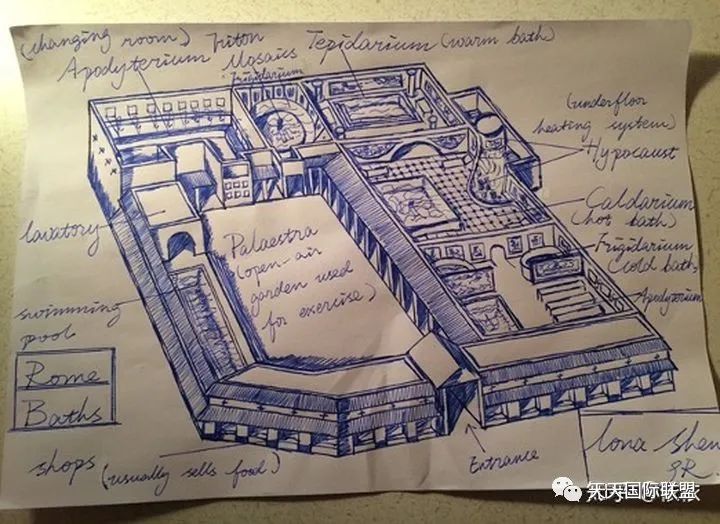 (changing room)
Apodyterium
Triton
Mosaics
Frigidarium
Tepidarium (warm bath)
(underfloor
heating system)
Hypocaust
Caldarium
(hot bath)
Frigidarium
(cold bath,
Apodyterium
lavatory
Palaestra
(open-air
garden used
for exercise)
swimming
pool
Rome
Baths
shops (usually sells food)
Entrance
Iona Shen
9R.
天天国际联盟